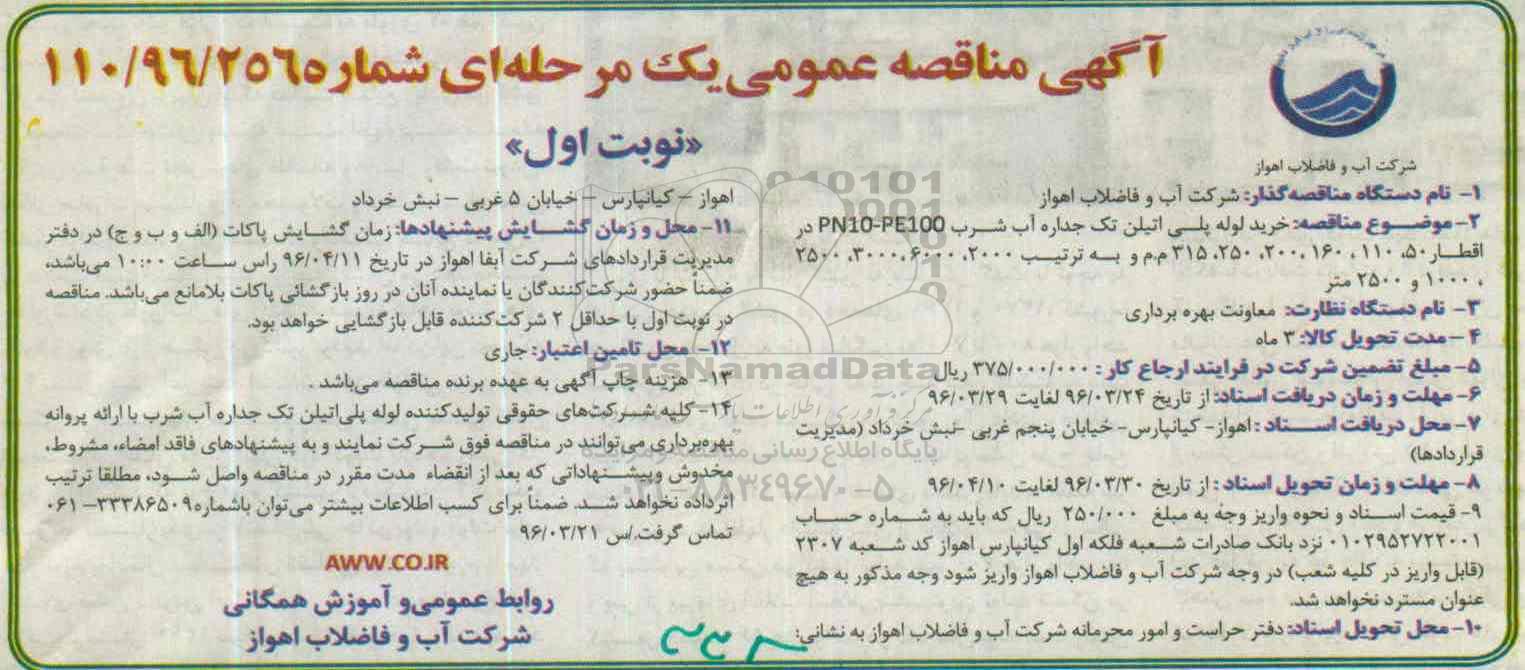 آگهی مناقصه عمومی یک مرحله‌ای شماره ۱۱۰/۹۶/۲۵۶۵
«نوبت اول»
شرکت آب و فاضلاب اهواز
۱- نام دستگاه مناقصه‌گذار: شرکت آب و فاضلاب اهواز
۲- موضوع مناقصه: خرید لوله پلی اتیلن تک جداره آب شرب PN10-PE100 در
اقطار ۵۰، ۱۱۰، ۱۶۰، ۲۰۰، ۲۵۰، ۳۱۵ م.م و به ترتیب ۲۰۰۰، ۶۰۰۰، ۳۰۰۰، ۲۵۰۰
، ۱۰۰۰ و ۲۵۰۰ متر
۳- نام دستگاه نظارت: معاونت بهره برداری
۴- مدت تحویل کالا: ۳ ماه
۵- مبلغ تضمین شرکت در فرایند ارجاع کار: ۳۷۵/۰۰۰/۰۰۰ ریال
۶- مهلت و زمان دریافت اسناد: از تاریخ ۹۶/۰۳/۲۴ لغایت ۹۶/۰۳/۲۹
۷- محل دریافت اسناد: اهواز- کیانپارس- خیابان پنجم غربی -نبش خرداد (مدیریت
قراردادها)
۸- مهلت و زمان تحویل اسناد: از تاریخ ۹۶/۰۳/۳۰ لغایت ۹۶/۰۴/۱۰
۹- قیمت اسناد و نحوه واریز وجه به مبلغ ۲۵۰/۰۰۰ ریال که باید به شماره حساب
۰۱۰۲۹۵۲۷۲۲۰۰۱ نزد بانک صادرات شعبه فلکه اول کیانپارس اهواز کد شعبه ۲۳۰۷
(قابل واریز در کلیه شعب) در وجه شرکت آب و فاضلاب اهواز واریز شود وجه مذکور به هیچ
عنوان مسترد نخواهد شد.
۱۰- محل تحویل اسناد: دفتر حراست و امور محرمانه شرکت آب و فاضلاب اهواز به نشانی:
اهواز – کیانپارس – خیابان ۵ غربی – نبش خرداد
۱۱- محل و زمان گشایش پیشنهادها: زمان گشایش پاکات (الف و ب و ج) در دفتر
مدیریت قراردادهای شرکت آبفا اهواز در تاریخ ۹۶/۰۴/۱۱ راس ساعت ۱۰:۰۰ می‌باشد،
ضمناً حضور شرکت‌کنندگان یا نماینده آنان در روز بازگشائی پاکات بلامانع می‌باشد. مناقصه
در نوبت اول با حداقل ۲ شرکت‌کننده قابل بازگشایی خواهد بود.
۱۲- محل تامین اعتبار: جاری
۱۳- هزینه چاپ آگهی به عهده برنده مناقصه می‌باشد .
۱۴- کلیه شرکت‌های حقوقی تولیدکننده لوله پلی‌اتیلن تک جداره آب شرب با ارائه پروانه
بهره‌برداری می‌توانند در مناقصه فوق شرکت نمایند و به پیشنهادهای فاقد امضاء، مشروط،
مخدوش وپیشنهاداتی که بعد از انقضاء مدت مقرر در مناقصه واصل شود، مطلقا ترتیب
اثرداده نخواهد شد. ضمناً برای کسب اطلاعات بیشتر می‌توان باشماره ۳۳۳۸۶۵۰۹–۰۶۱
تماس گرفت./س ۹۶/۰۳/۲۱
AWW.CO.IR
روابط عمومی و آموزش همگانی
شرکت آب و فاضلاب اهواز
ParsNamadData
پایگاه اطلاع رسانی
۰۲۱-۸۸۳۴۹۶۷۰-۵